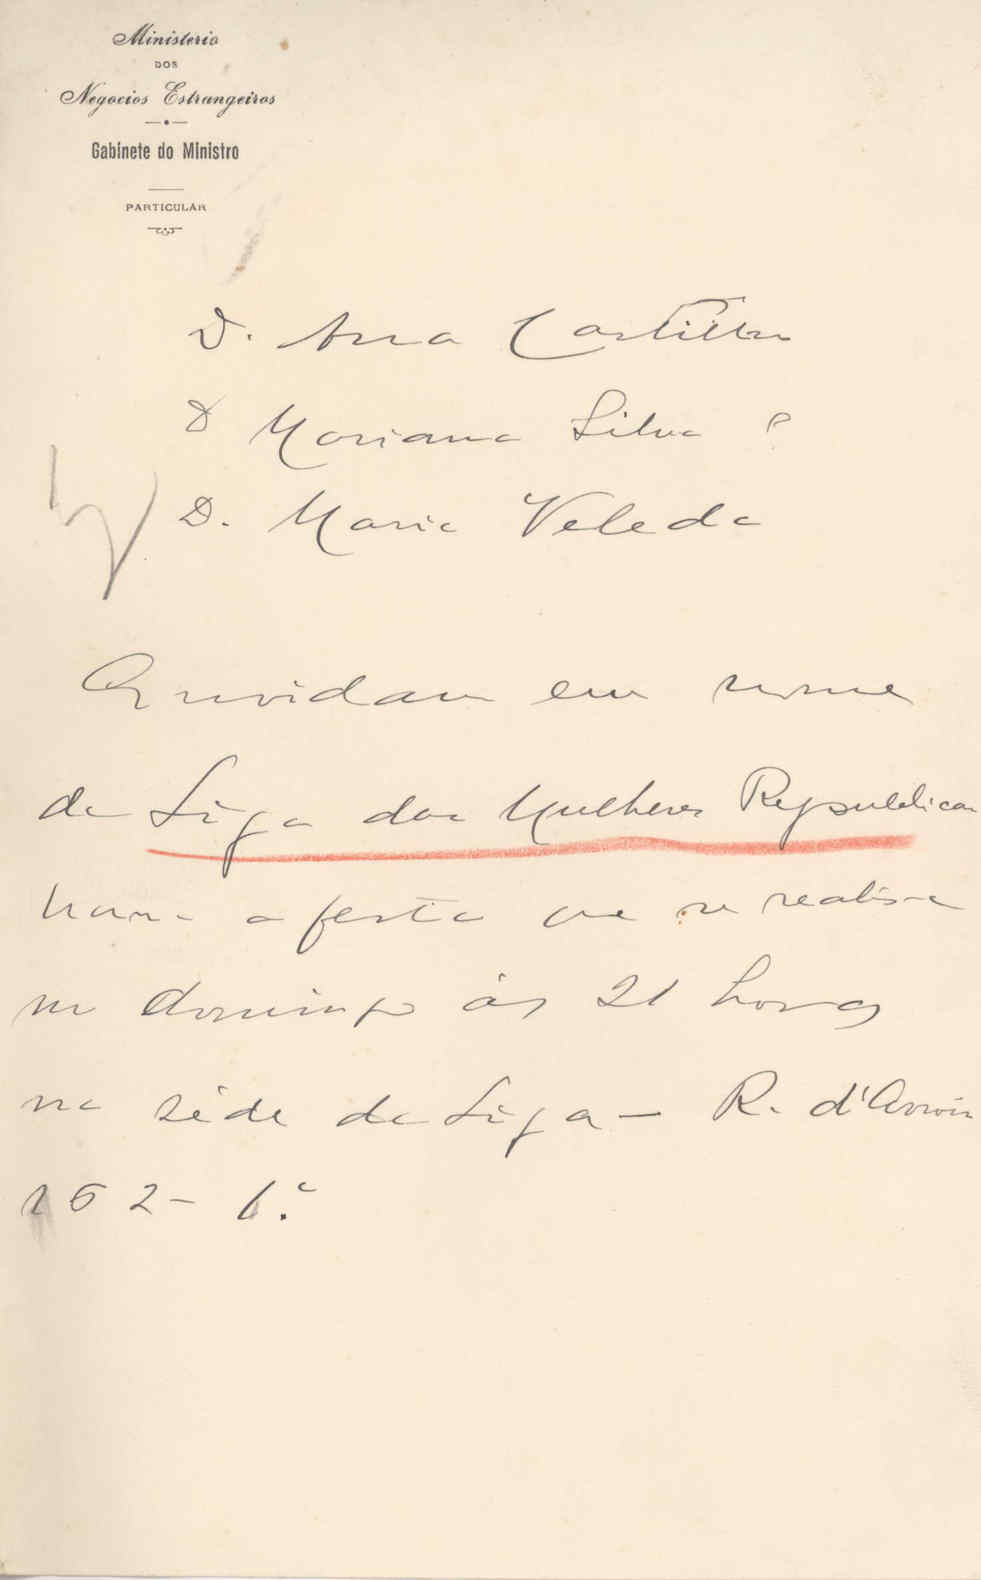 Ministerio
DOS
Negocios Estrangeiros
Gabinete do Ministro
PARTICULAR
D. Ana Castilho
D Mariana Silva
D. Maria Veleda
Convidam em nome
da Liga das Mulheres Republicanas
para a festa que se realisa
no domingo às 21 horas
na séde da Liga - R. d'Arroios
162 - 1.º